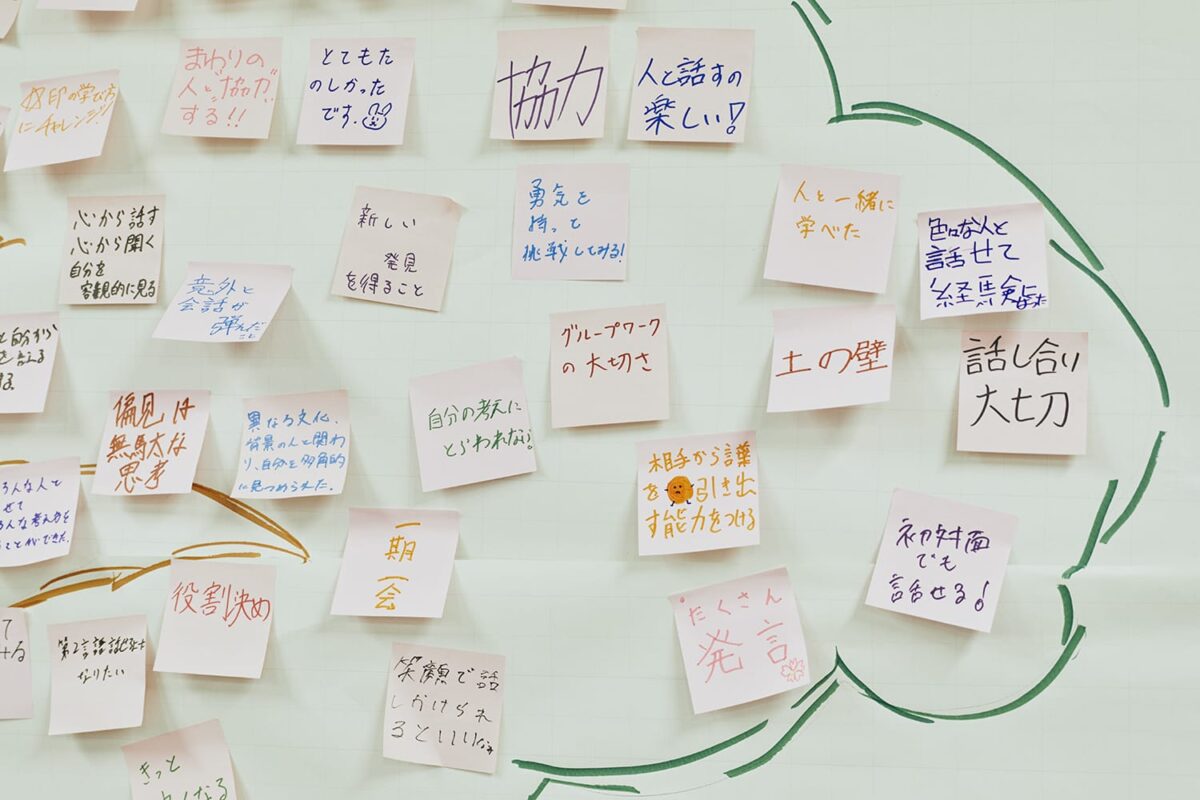 まわりの
人と"協力"
する!!
とてもた
のしかった
です.
協力
人と話すの
楽しい!
の学び方
にチャレンジ!
心から話す
心から聞く
自分を
客観的に見る
意外と
会話が
弾んだ
こと
新しい
発見
を得ること
勇気を
持って
挑戦してみる!
人と一緒に
学べた
色々な人と
話せて
経験になった
グループワーク
の大切さ
土の壁
話し合い
大切
と自分から
を言える
偏見は
無駄な
思考
異なる文化、
背景の人と関わ
り、自分を多角的
に見つめられた.
自分の考えに
とらわれない!
相手から言葉
を引き出
す能力をつける
ろんな人と
せて
ろんな考え方を
ことができた.
一期
一会
初対面
でも
話せる!
役割決め
たくさん
発言
て
第2言語話せるように
なりたい
笑顔で話
しかけられ
るといいなぁ
きっと
くなる